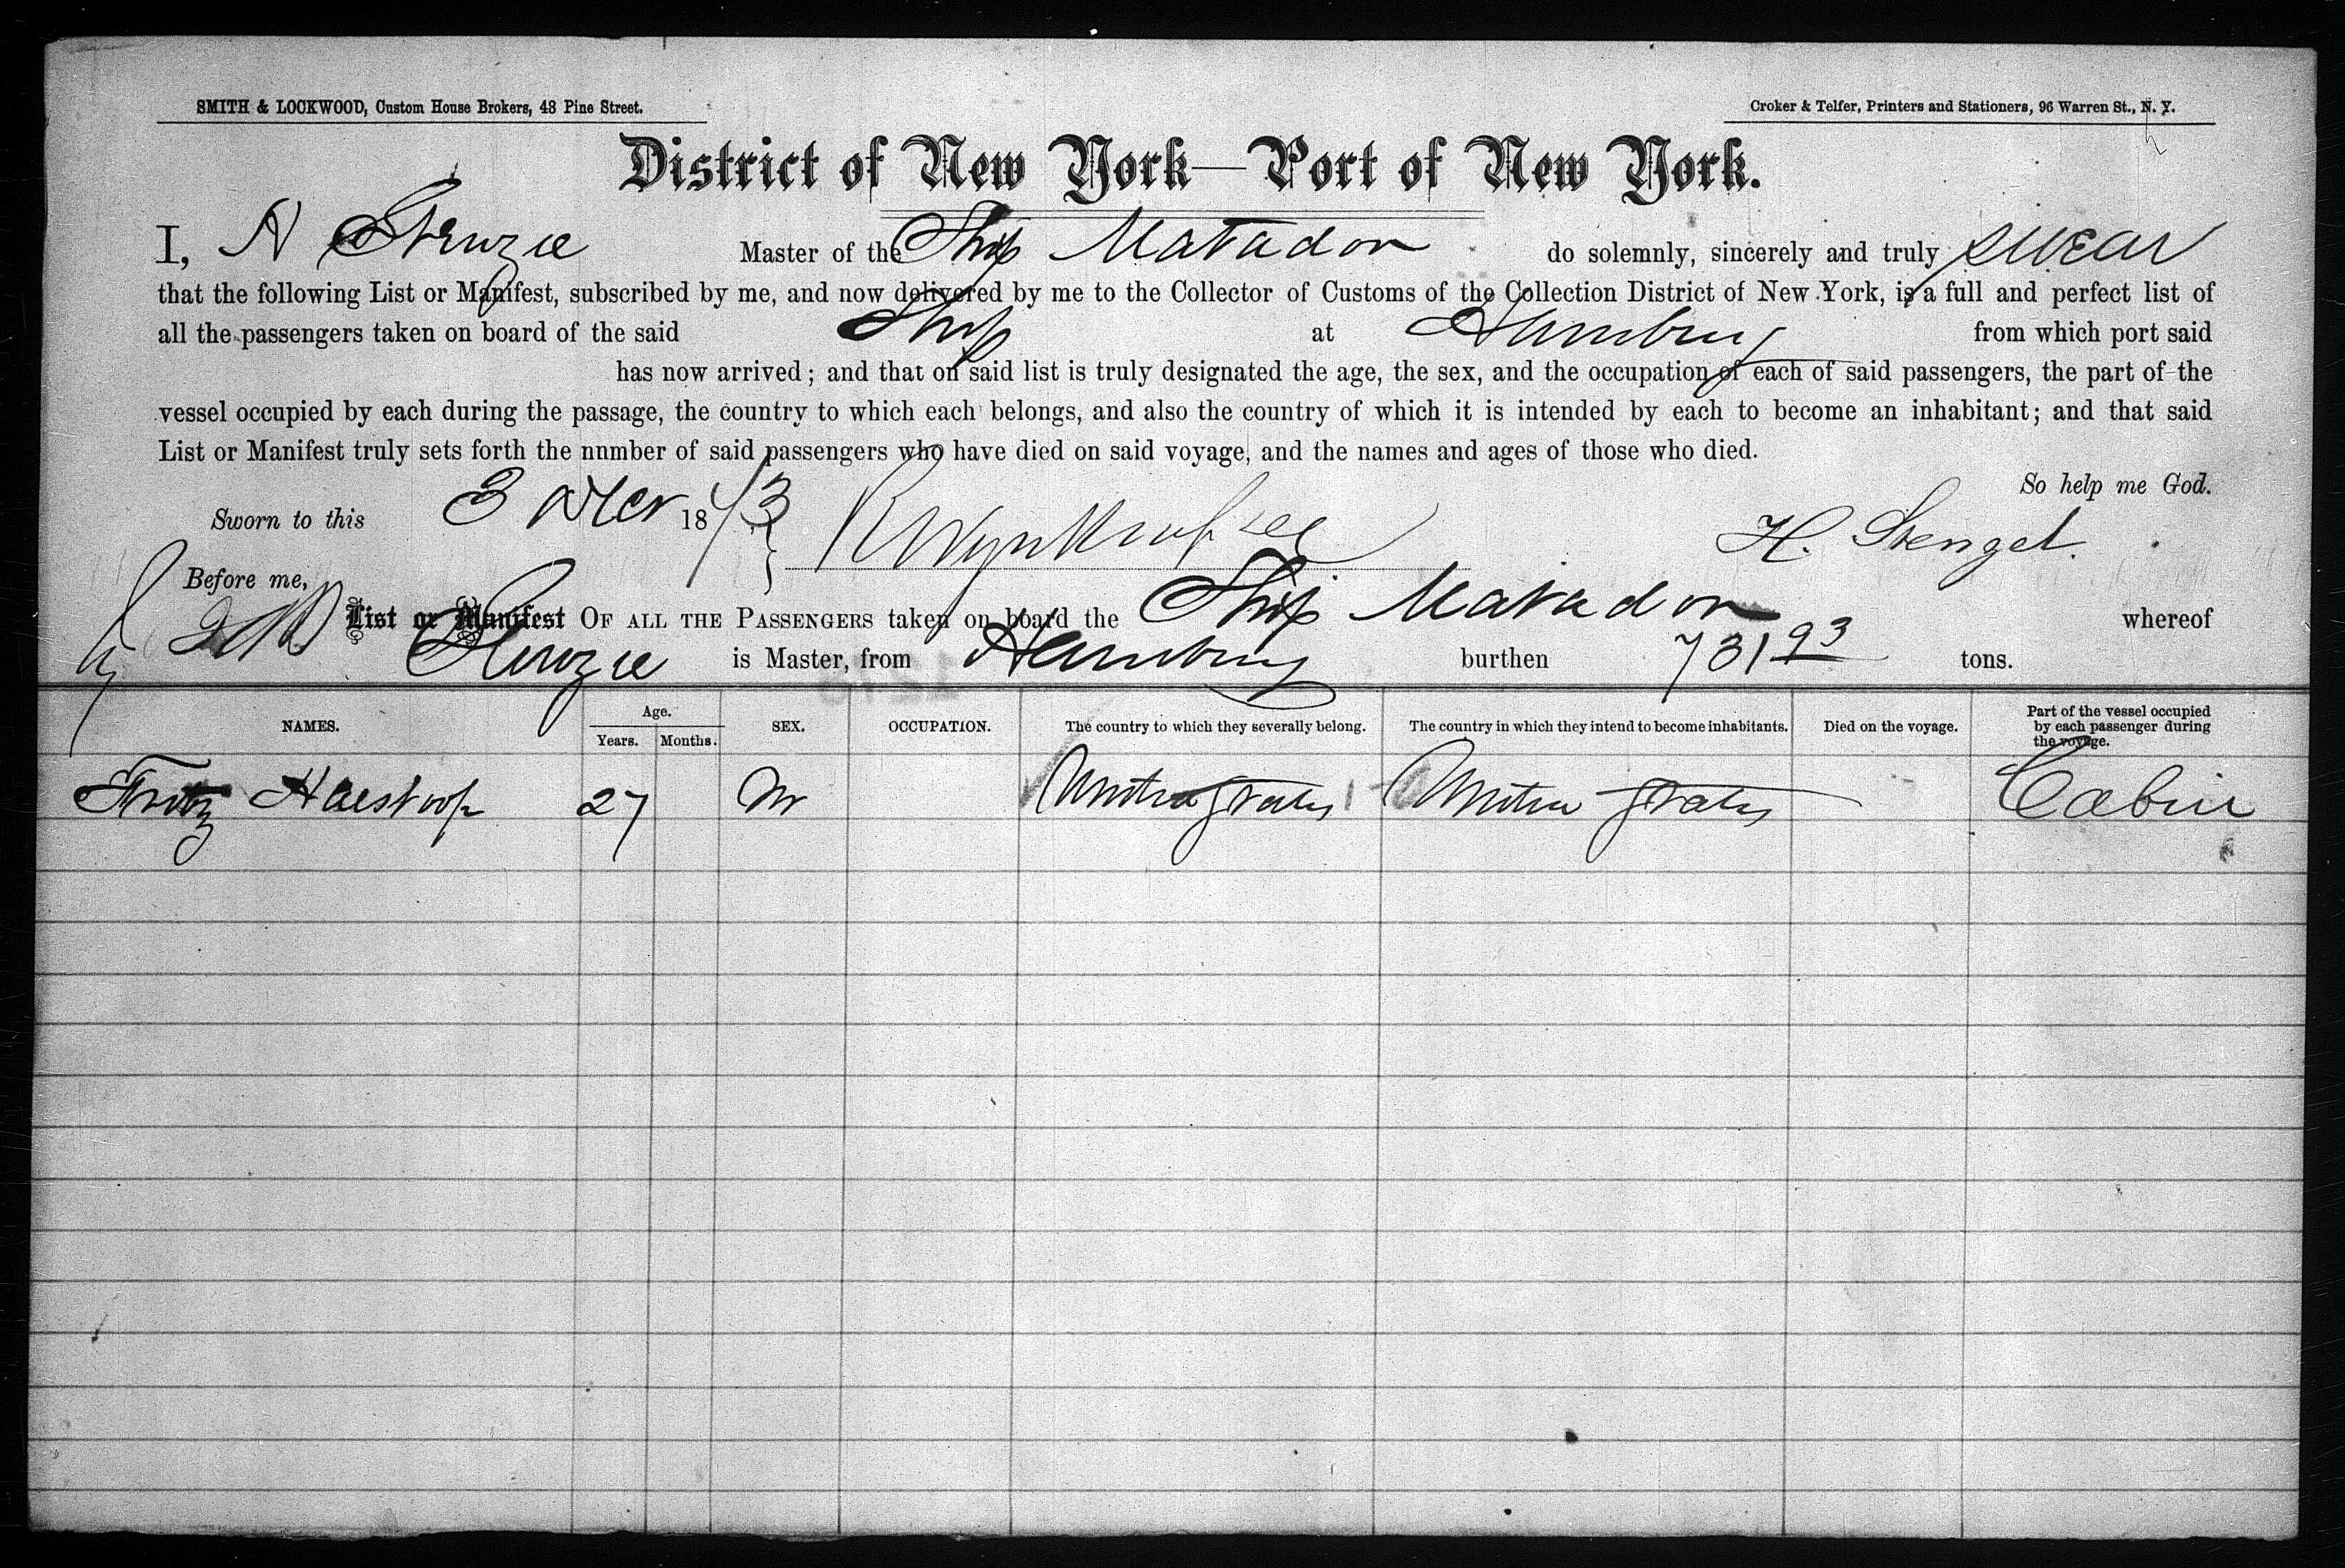 SMITH & LOCKWOOD, Custom House Brokers, 43 Pine Street.
Croker & Telfer, Printers and Stationers, 96 Warren St., N. Y.
District of New York—Port of New York.
I, Master of the Ship Matador do solemnly, sincerely and truly swear
that the following List or Manifest, subscribed by me, and now delivered by me to the Collector of Customs of the Collection District of New York, is a full and perfect list of
all the passengers taken on board of the said Ship at Hamburg from which port said
has now arrived; and that on said list is truly designated the age, the sex, and the occupation of each of said passengers, the part of the
vessel occupied by each during the passage, the country to which each belongs, and also the country of which it is intended by each to become an inhabitant; and that said
List or Manifest truly sets forth the nnmber of said passengers who have died on said voyage, and the names and ages of those who died.
So help me God.
Sworn to this 3 18 73 H. Stengel.
Before me,
List or Manifest OF ALL THE PASSENGERS taken on board the Ship Matador whereof
is Master, from Hamburg burthen 731 93 tons.
NAMES. Age. Years. Months. SEX. OCCUPATION. The country to which they severally belong. The country in which they intend to become inhabitants. Died on the voyage. Part of the vessel occupied by each passenger during the voyage.
Fritz 27 M United States United States Cabin